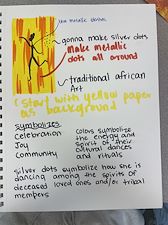 use metallic sharpies
gonna make silver dots
Make metallic
dots all around
traditional african
Art
start with yellow paper
as background
symbolizes
Celebration
Joy
Community
Colors symbolize
the energy and
spirit of their
cultural dances
and rituals
silver dots symbolize how she is
dancing among the spirits of
deceased loved ones and/or tribal
members